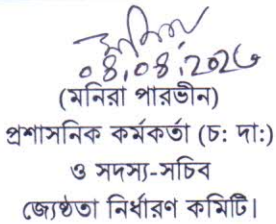 ০৪.০৪.২০২৬
(মনিরা পারভীন)
প্রশাসনিক কর্মকর্তা (চ: দা:)
ও সদস্য-সচিব
জ্যেষ্ঠতা নির্ধারণ কমিটি।